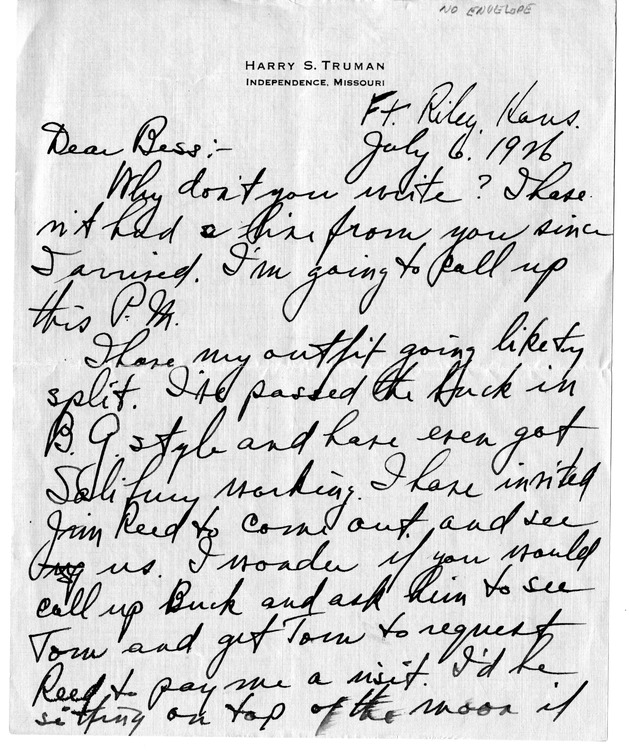 NO ENVELOPE
HARRY S. TRUMAN
INDEPENDENCE, MISSOURI
Ft. Riley, Kans.
July 6, 1926
Dear Bess:-
Why don't you write? I have
n't had a line from you since
I arrived. I'm going to call up
this P.M.
I have my outfit going likety
split. I've passed the buck in
B.G. style and have even got
Salisbury working. I have invited
Jim Reed to come out and see
my us. I wonder if you would
call up Buck and ask him to see
Tom and get Tom to request
Reed to pay me a visit. I'd be
sitting on top of the moon if